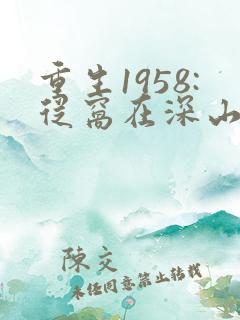 重生1958:
从窝在深山
陈交
未经同意禁止转载